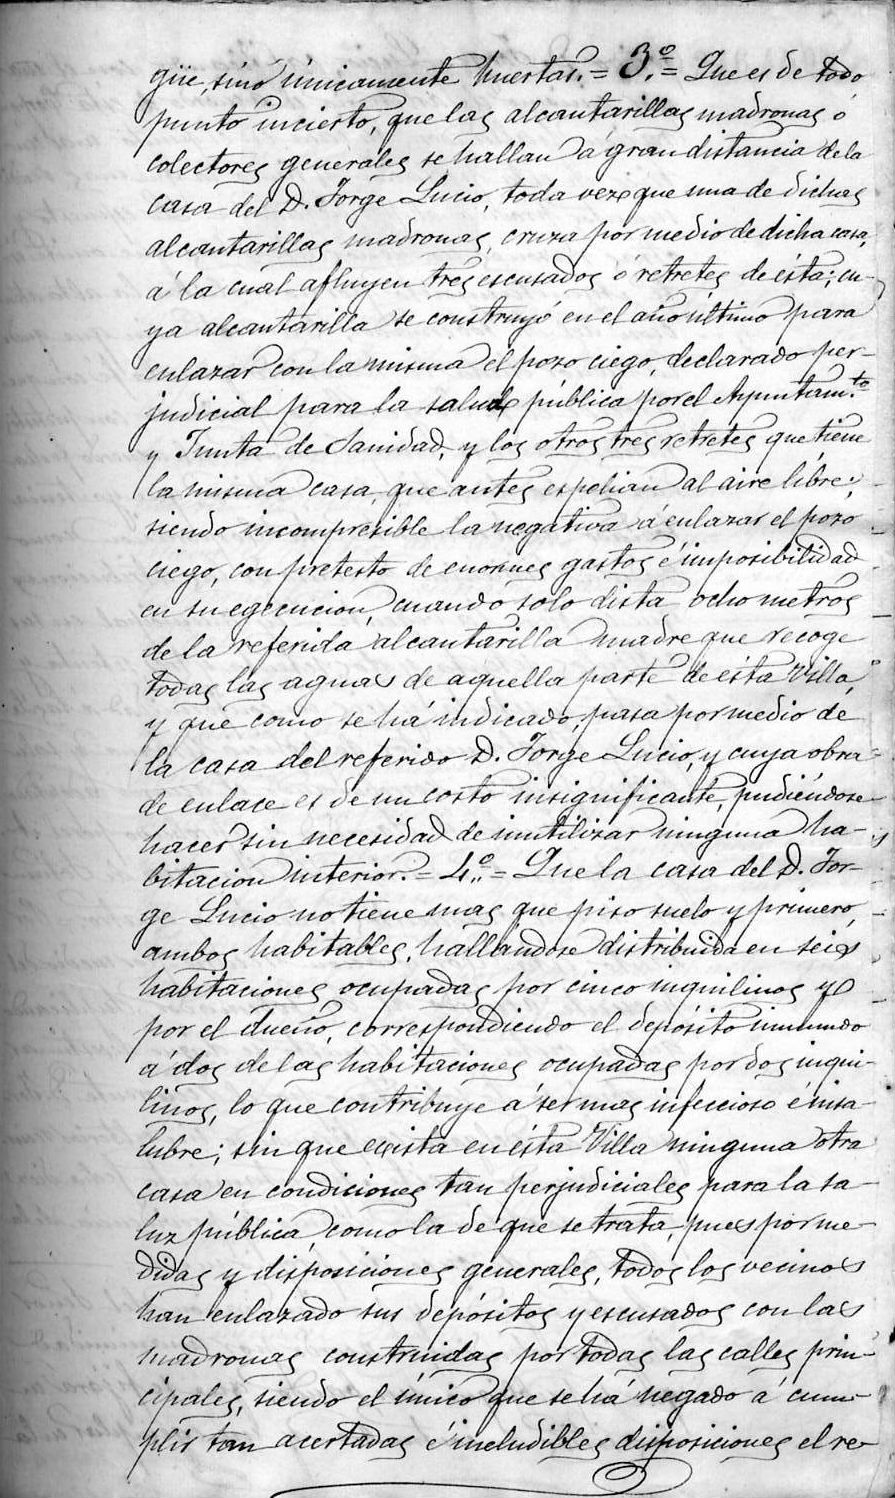 güe, sinó únicamente huertas. = 3.º = Que es de todo
punto incierto, que las alcantarillas madronas ó
colectores generales se hallan á gran distancia de la
casa del D. Jorge Lucio, toda vez que una de dichas
alcantarillas madronas, cruza por medio de dicha casa,
á la cual afluyen tres escusados ó retretes de ésta; cu-
ya alcantarilla se construyó en el año último para
enlazar con la misma el pozo ciego, declarado per-
judicial para la salud pública por el Ayuntam.to
y Junta de Sanidad, y los otros tres retretes que tiene
la misma casa, que antes espelian al aire libre;
siendo incompresible la negativa á enlazar el pozo
ciego, con pretesto de enormes gastos é imposibilidad
en su egecucion, cuando solo dista ocho metros
de la referida alcantarilla madre que recoge
todas las aguas de aquella parte de ésta Villa,
y que como se há indicado, pasa por medio de
la casa del referido D. Jorge Lucio, y cuya obra
de enlace es de un costo insignificante, pudiéndose
hacer sin necesidad de inutilizar ninguna ha-
bitacion interior. = 4.º = Que la casa del D. Jor-
ge Lucio no tiene mas que piso suelo y primero,
ambos habitables, hallandose distribuida en seis
habitaciones ocupadas por cinco inquilinos y
por el dueño, correspondiendo el depósito inmundo
á dos de las habitaciones ocupadas por dos inqui-
linos, lo que contribuye á ser mas infeccioso é insa-
lubre; sin que exista en ésta Villa ninguna otra
casa en condiciones tan perjudiciales para la sa-
luz pública como la de que se trata, pues por me-
didas y disposiciones generales, todos los vecinos
han enlazado sus depósitos y escusados con las
madronas construidas por todas las calles prin-
cipales, siendo el único que se há negado á cum-
plir tan acertadas é ineludibles disposiciones el re-